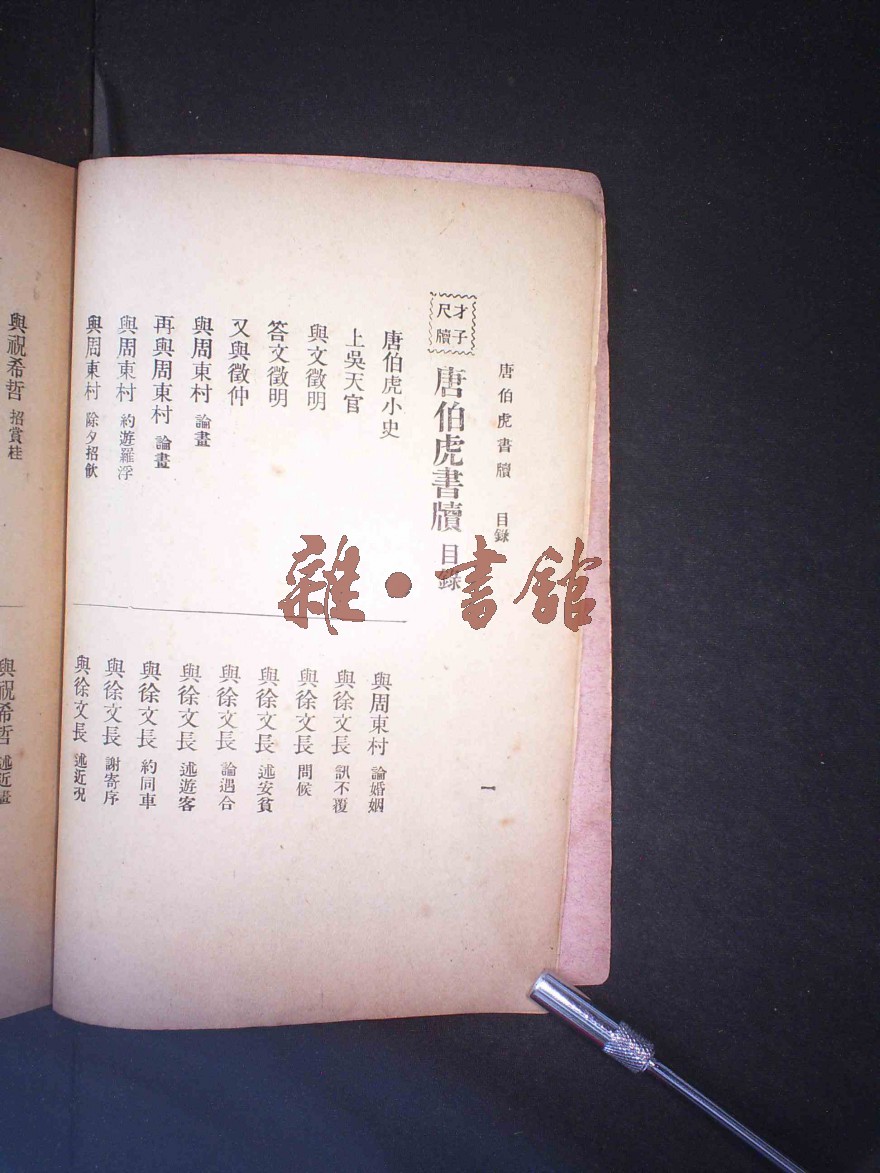 唐伯虎書牘 目錄
一
才子尺牘
唐伯虎書牘 目錄
唐伯虎小史
上吳天官
與文徵明
答文徵明
又與徵仲
與周東村 論畫
再與周東村 論畫
與周東村 約遊羅浮
與周東村 除夕招飲
與周東村 論婚姻
與徐文長 訊不覆
與徐文長 問候
與徐文長 述安貧
與徐文長 論遇合
與徐文長 述遊客
與徐文長 約同車
與徐文長 謝寄序
與徐文長 述近況
與祝希哲 招賞桂
與祝希哲 述近
雜·書館